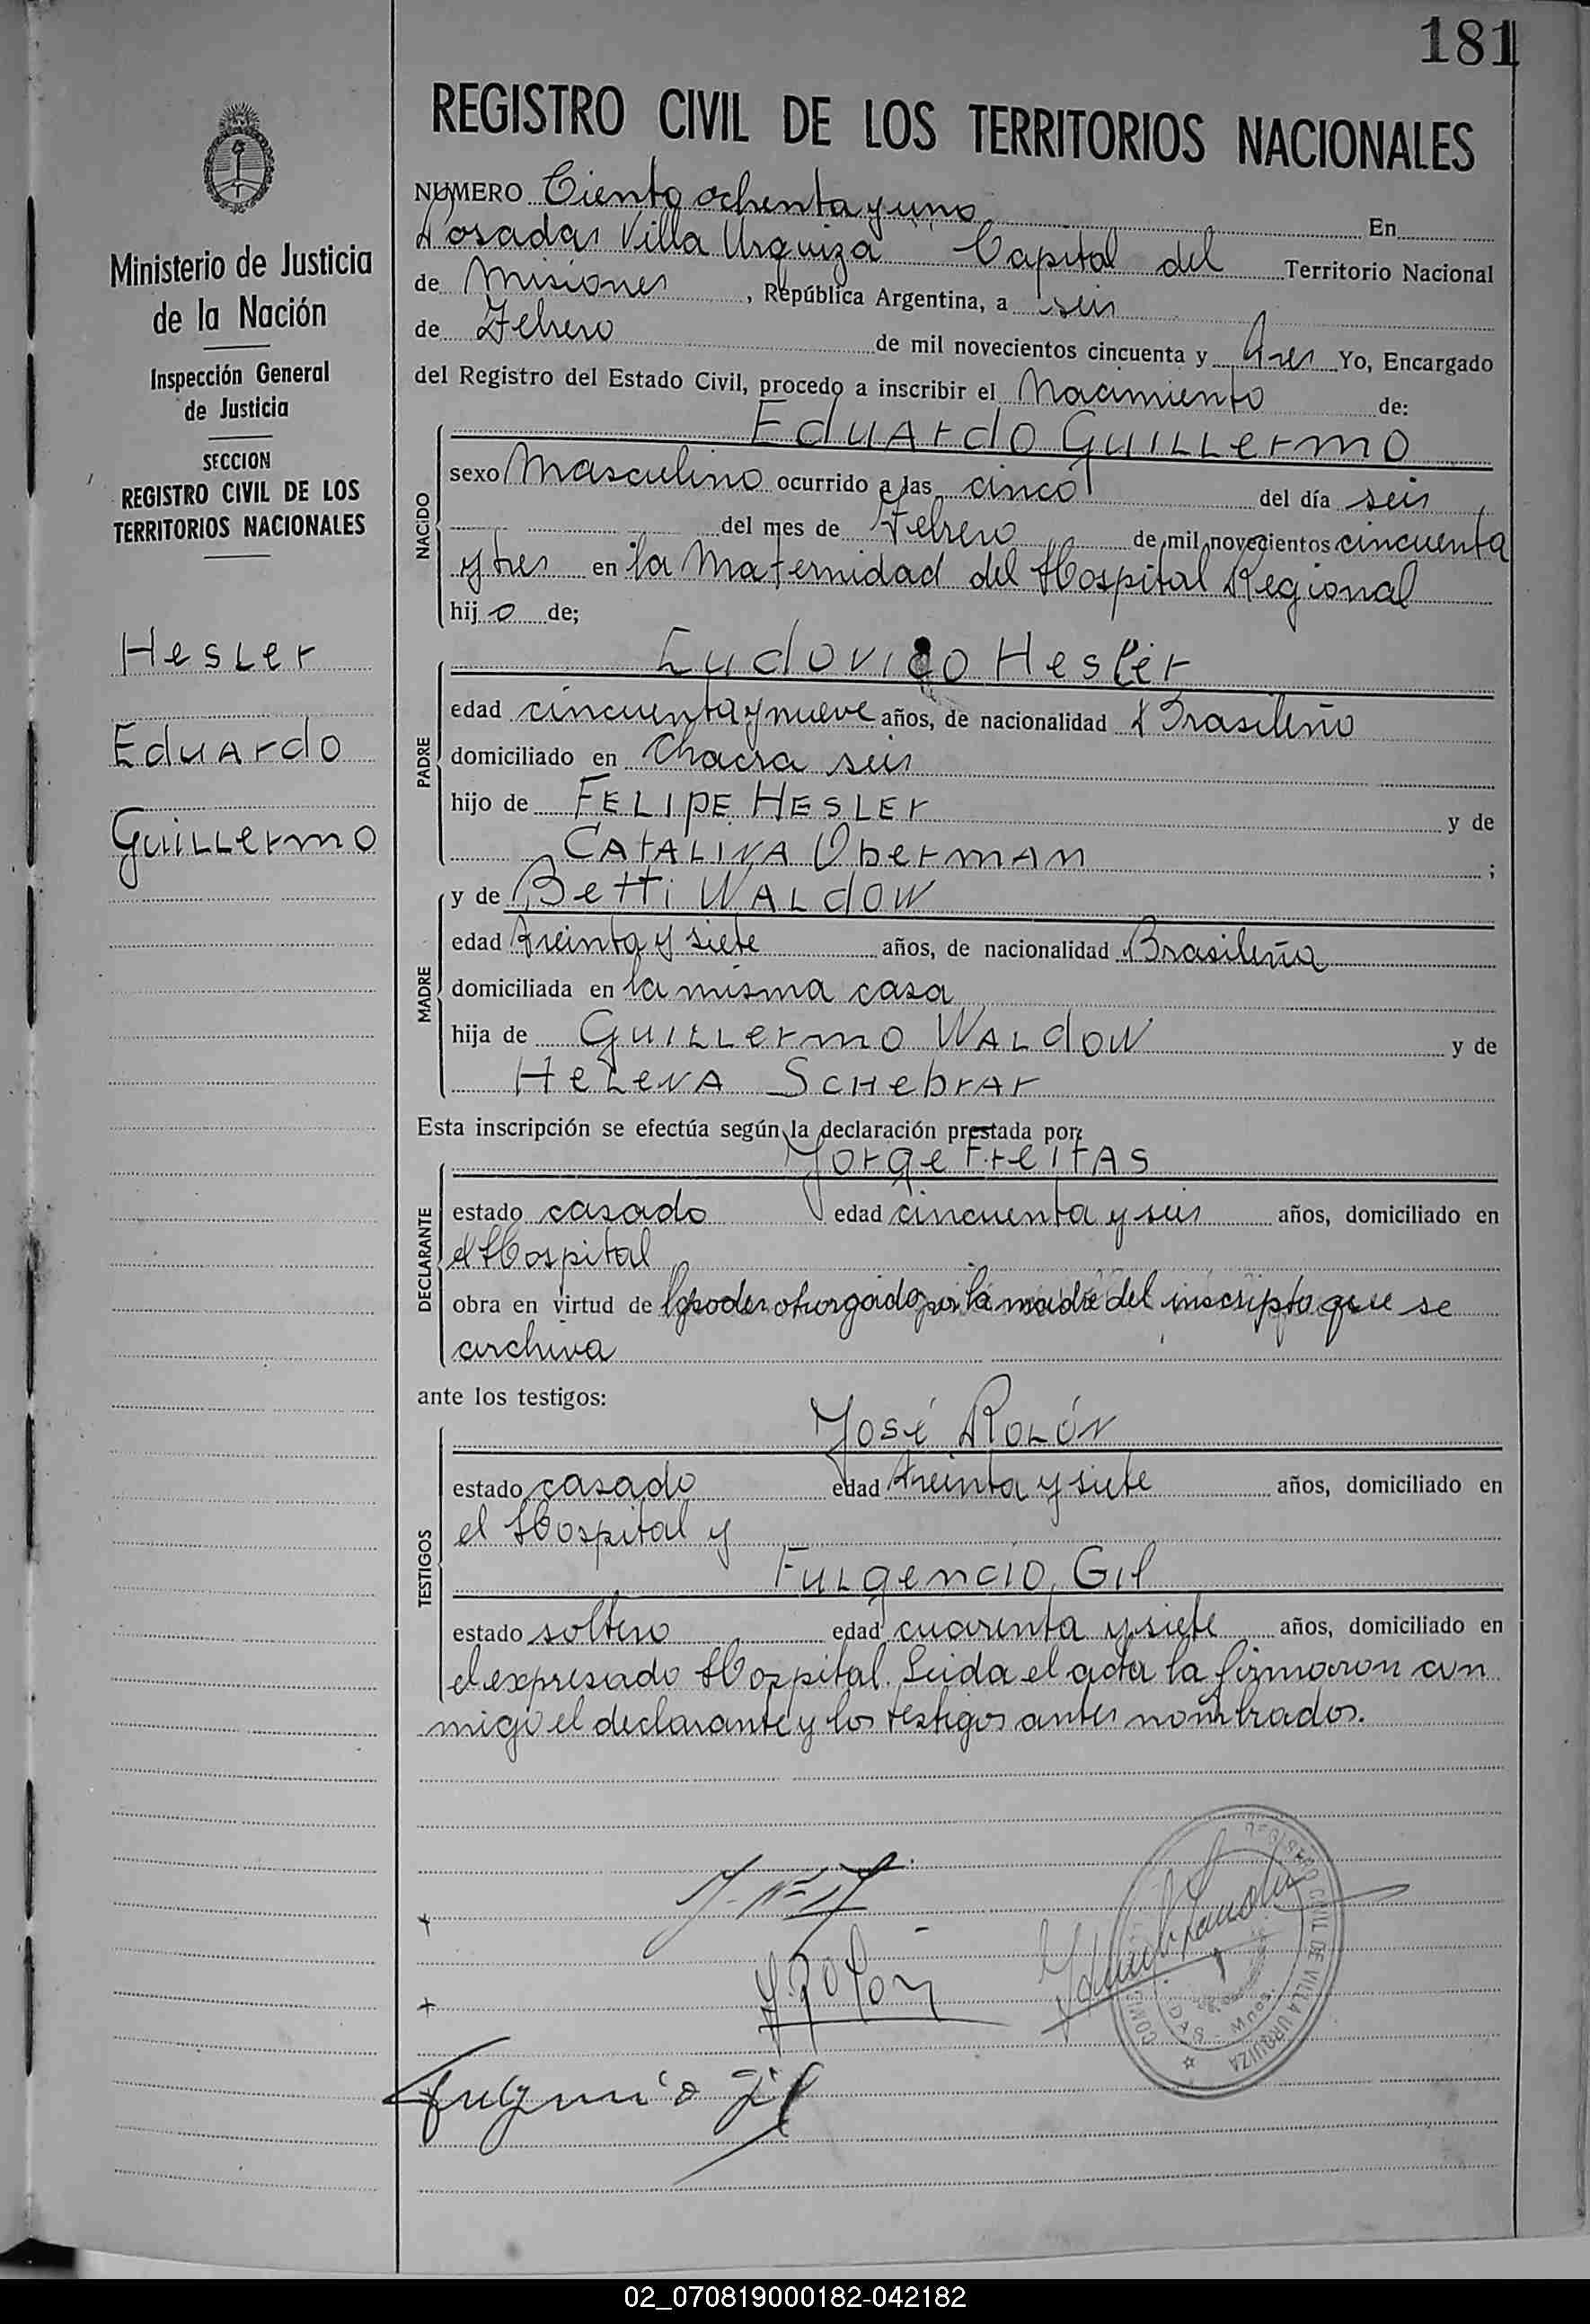 181
REGISTRO CIVIL DE LOS TERRITORIOS NACIONALES
Ministerio de Justicia
de la Nación
Inspección General
de Justicia
SECCION
REGISTRO CIVIL DE LOS
TERRITORIOS NACIONALES
Hesler
Eduardo
Guillermo
NUMERO Ciento ochenta y uno En
Posadas Villa Urquiza Capital del Territorio Nacional
de Misiones, República Argentina, a seis
de Febrero de mil novecientos cincuenta y tres Yo, Encargado
del Registro del Estado Civil, procedo a inscribir el Nacimiento de:
NACIDO
Eduardo Guillermo
sexo Masculino ocurrido a las cinco del día seis
del mes de Febrero de mil novecientos cincuenta
y tres en la Maternidad del Hospital Regional
hijo de;
PADRE
Ludovico Hesler
edad cincuenta y nueve años, de nacionalidad Brasileño
domiciliado en Chacra seis
hijo de FELIPE HESLEr y de
CATALINA Oberman ;
MADRE
y de Betti WALDOW
edad treinta y siete años, de nacionalidad Brasileña
domiciliada en la misma casa
hija de Guillermo WALDOW y de
Helena Schebrar
Esta inscripción se efectúa según la declaración prestada por:
DECLARANTE
Jorge Freitas
estado casado edad cincuenta y seis años, domiciliado en
el Hospital
obra en virtud de poder otorgado por la madre del inscripto que se
archiva
ante los testigos:
TESTIGOS
José Rolón
estado casado edad treinta y siete años, domiciliado en
el Hospital y
Fulgencio Gil
estado soltero edad cuarenta y siete años, domiciliado en
el expresado Hospital. Leida el acta la firmaron con
migo el declarante y los testigos antes nombrados.
J. Rolón
REGISTRO CIVIL DE VILLA URQUIZA
Fulgencio Gil
02_070819000182-042182